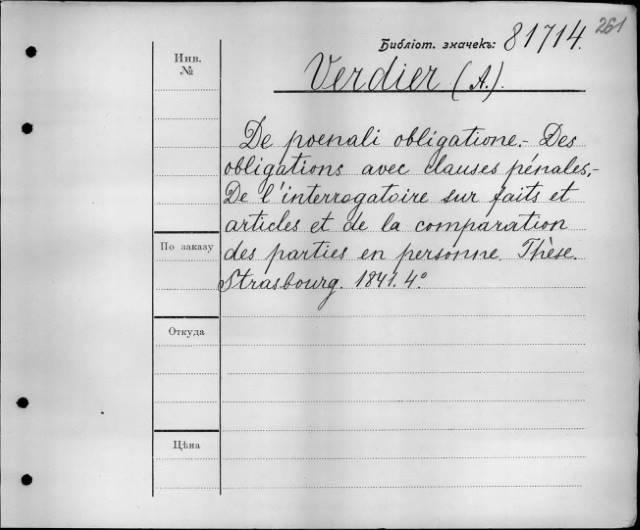 261
Библіот. значекъ: 81714.
Инв.
№
Verdier (A.).
De poenali obligatione.- Des
obligations avec clauses pénales.-
De l'interrogatoire sur faits et
articles et de la comparation
des parties en personne. Thèse.
Strasbourg. 1841. 4º
По заказу
Откуда
Цѣна